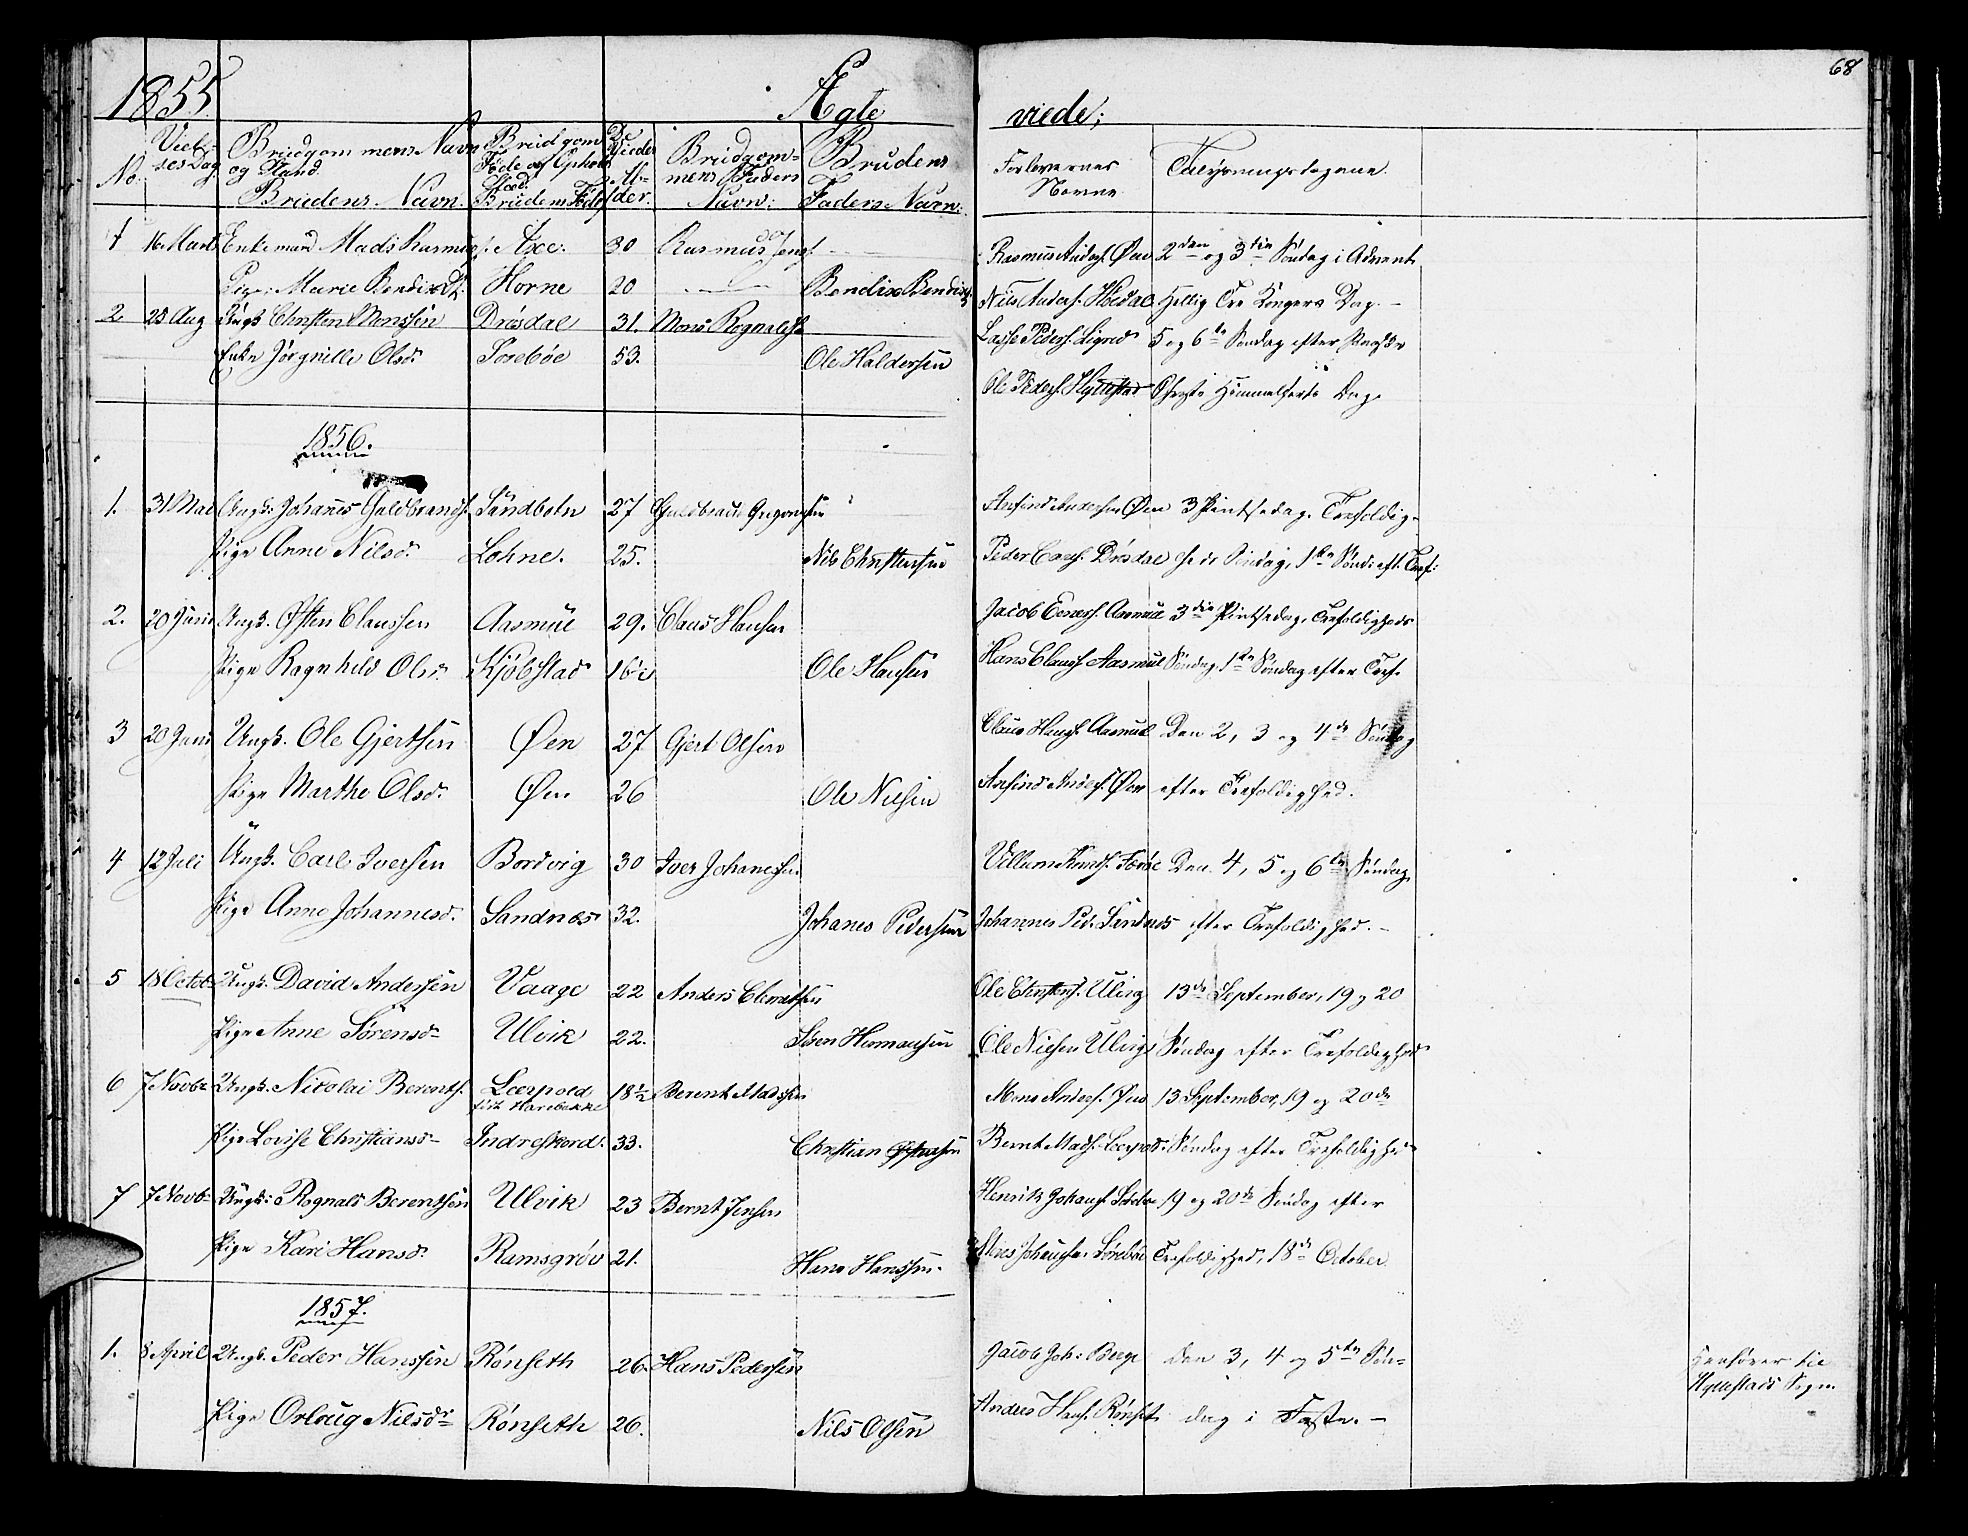 68
1855. Ægte viede;
No. Viel- Brudgommens Navn Brudgom De Brudgom- Brudens Forlovernes Tillysningsdagene.
ses Dag og Stand. Føde og Ophols Viedes mens Faders Faders Navn: Navne
Brudens Navn. Sted. Al- Navn:
Brudens Føde der.
1 16 Marts Enkemand Mads Rasmus Axe. 30 Rasmus Jens. Rasmus Anders. Øen 2den og 3die Søndag i Advent
Pige: Marie Bendixd. Horne 20 Bendix Bendix Nils Anders. Hellig Tre Kongers Dag. –
2 23 Aug Ungk Christen Monssen Drøsdal 31. Mons Rognalds Lasse Peders. 5 og 6te Søndag efter Paaske
Enke Jørgnille Olsd. Sørebøe 53. Ole Haldersen Ole Peders. Hyllestad Christi Himmelfarts Dag.
1856.
1. 31 Mai Ungk. Johanes Guldbrands. Sandboln 27 Guldbrand Gregoriussen Anfind Andersen Øen 3 Pintsedag, Trefoldig-
Pige Anne Nilsd. Lohne. 25. Nils Christensen Peder Drøsdal heds Søndag, 1ste Sønd: eft. Tref:
2. 20 Juni Ungk. Østen Claussen Aasmul 29. Claus Hansen Jacob Aasmul 3die Pintsedag, Trefoldigheds
Pige Ragnhild Olsd. Kjøbstad 16½ Ole Hansen Hans Clauss. Aasmul Søndag, 1ste Søndag efter Tref.
3 20 Juni Ungk. Ole Gjertsen Øen 27 Gjert Olsen Claus Hans. Aasmul Den 2, 3 og 4de Søndag
Pige Marthe Olsd. Øen 26 Ole Nilsen Anfind Anders. Øen efter Trefoldighed.
4 12 Juli Ungk. Carl Iversen Bordvig 30 Iver Johanessen Villum Knuds. Den 4, 5 og 6te Søndag
Pige Anne Johannesd. Sandnes 32. Johanes Pedersen Johannes Ped. Sandnes efter Trefoldighed. –
5 18 Octob. Ungk. David Andersen Vaage 22 Anders Ole Christens. Ulvig 13de September, 19 og 20
Pige Anne Sørensd. Ulvik 22. Søren Hermansen Ole Nielsen Ulvig Søndag efter Trefoldighed
6 7 Novbr. Ungk. Nicolai Berents. Leerpold 18½ Berent Madssen Mons Anders. Øen 13 September, 19 og 20de
Pige Lovise Christiansd. Indrefjord. 33. Christian Bernt Mads. Leerpold Søndag efter Trefoldighed
7 7 Novbr. Ungk: Rognald Berentsen Ulvik 23 Bernt Jensen Henrik Johans. 19 og 20de Søndag efter
Pige Kari Hansd. Ramsgrøv 21. Hans Hanssen. Sørebøe Trefoldighed, 18de October
1857.
1. 8 April Ungk. Peder Hanssen Rønseth 26. Hans Pedersen Jacob Joh: Berge den 3, 4 og 5te Søn- Henhører til
Hyllestads Sogn.
Pige Orloug Nilsdr. Rønseth 26. Nils Olsen Anders Hans. Rønset dag i Faste. –